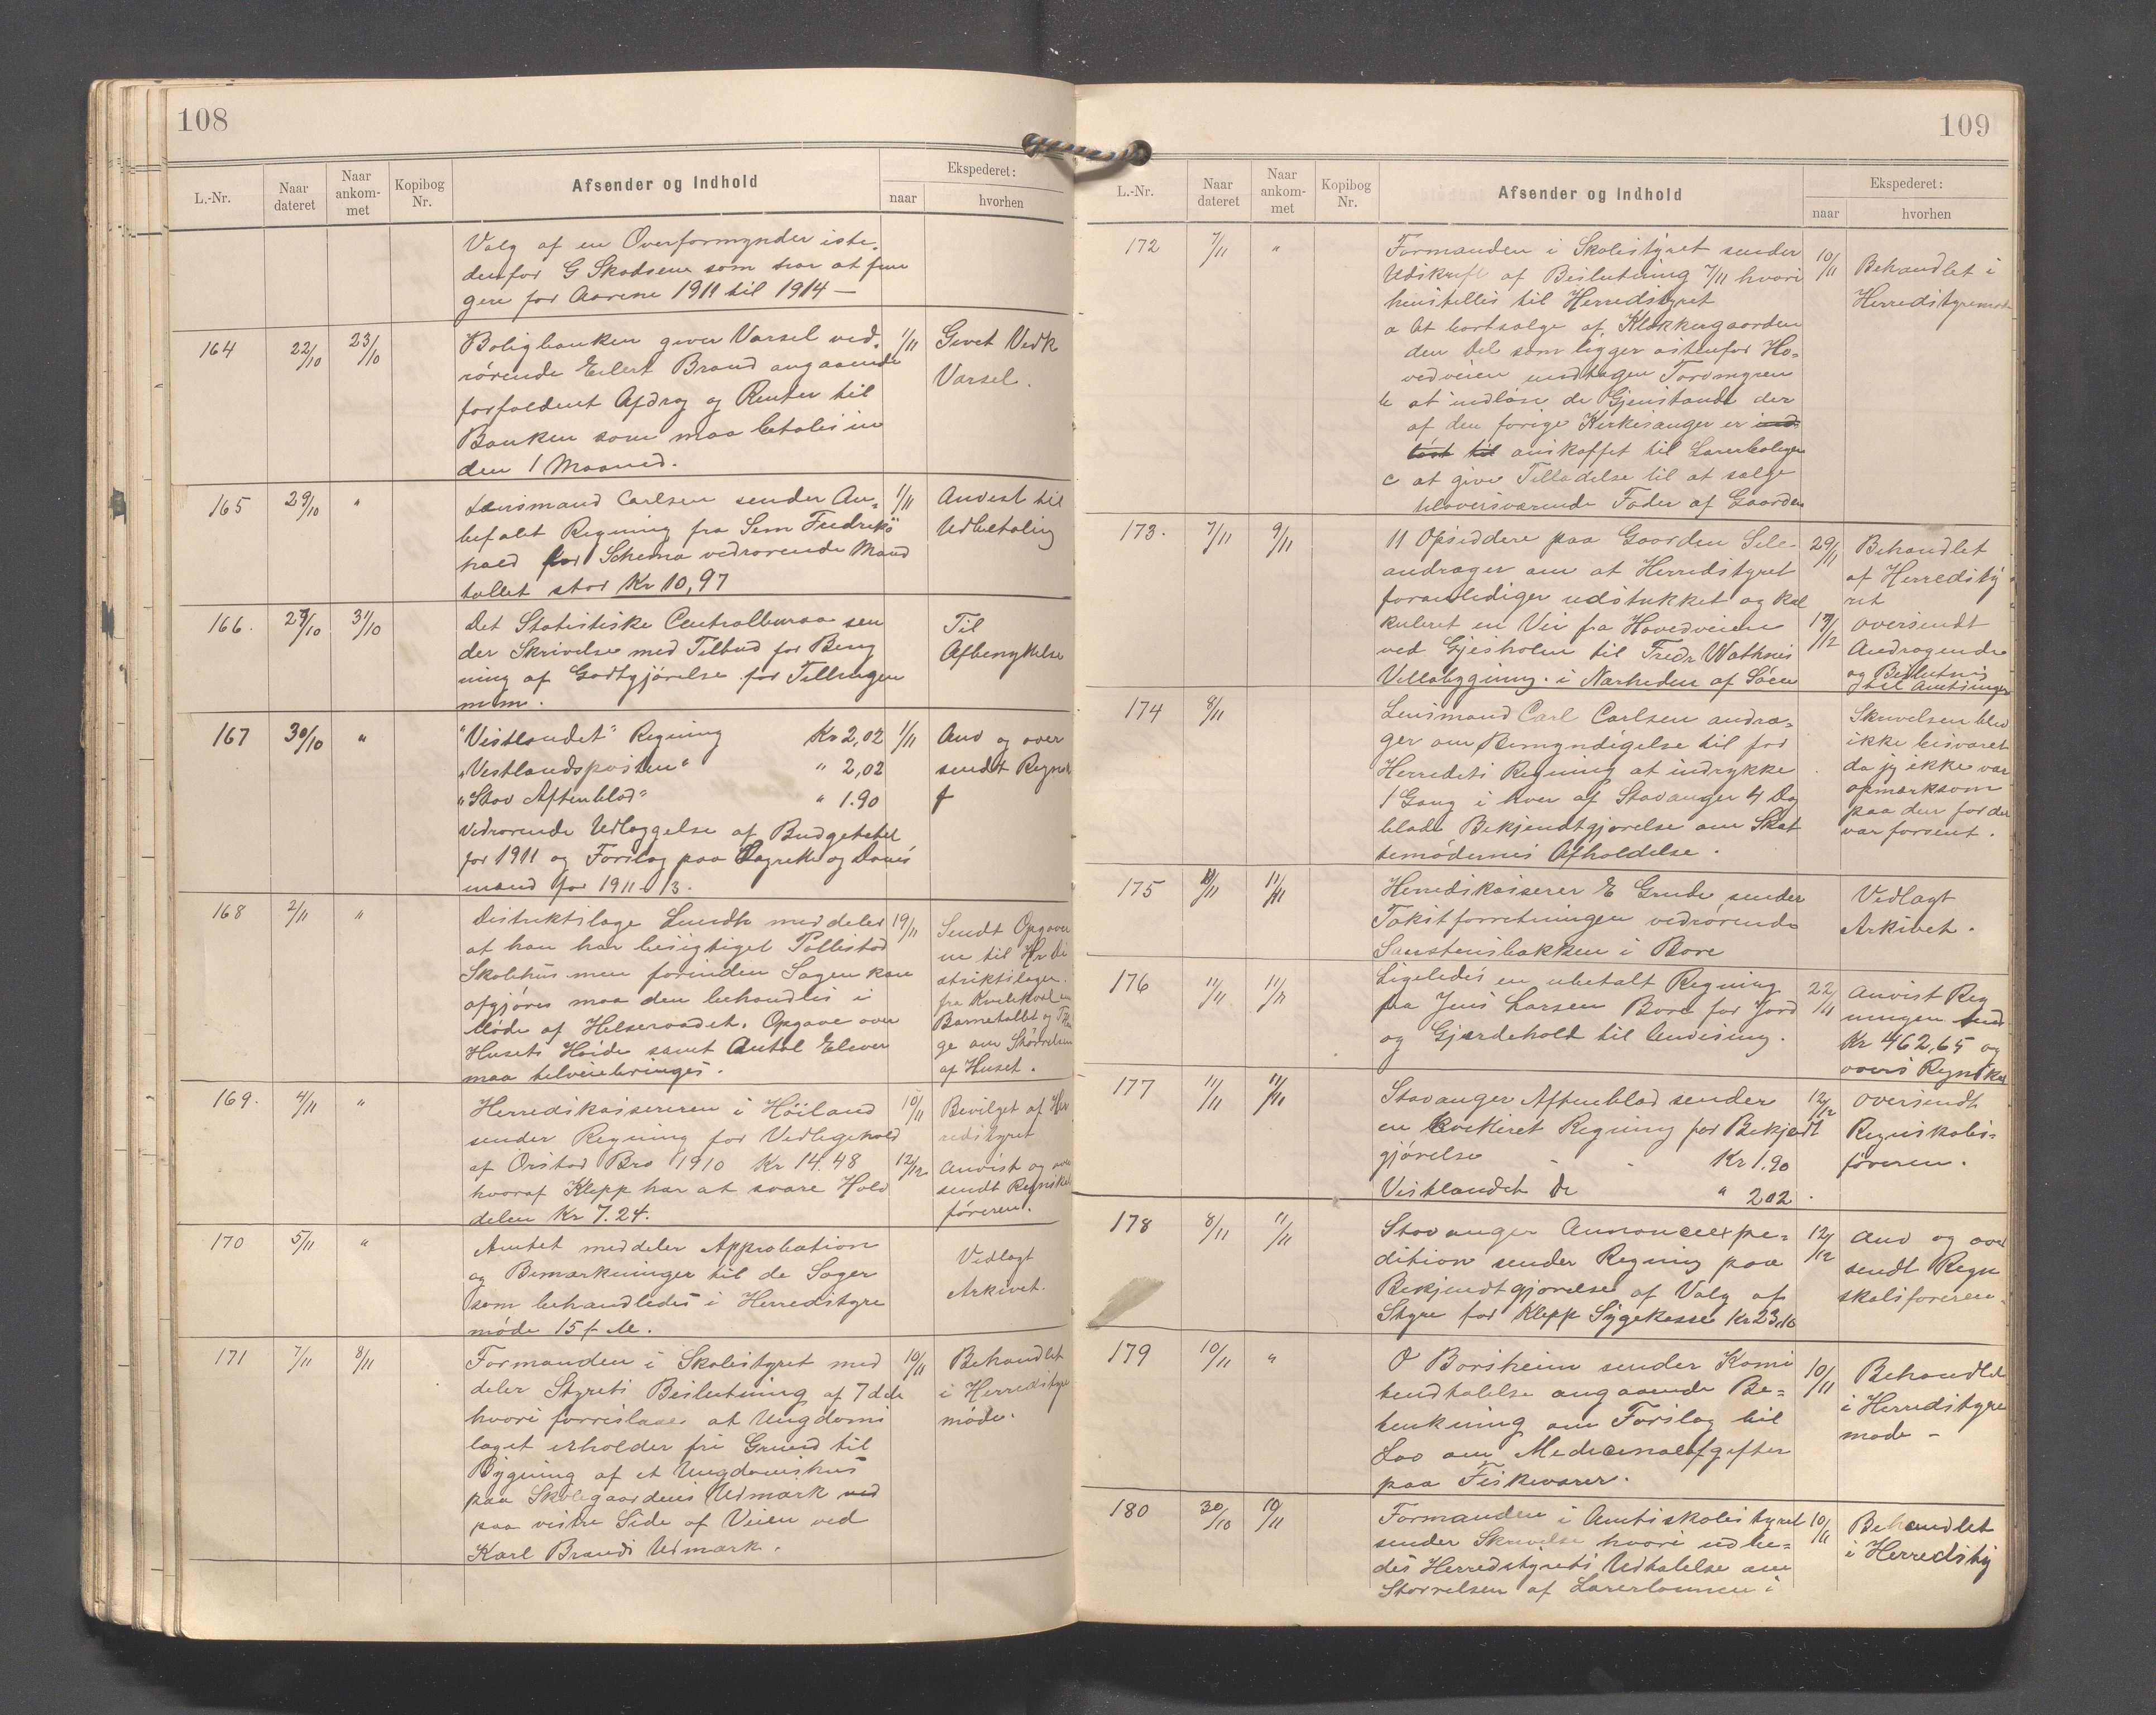 108
L.-Nr. Naar dateret Naar ankom-met Kopibog Nr. Afsender og Indhold Ekspederet: naar hvorhen
Valg af en Overformynder iste-
denfor G Skadsem som har at fun
gere for Aarene 1911 til 1914 —
164 22/10 23/10 Boligbanken giver Varsel ved- 1/11 Givet Vedk
rørende Eilert Brand angaaende Varsel.
forfaldent Afdrag og Renter til
Banken som maa betales in
den 1 Maaned.
165 29/10 " Lensmand Carlsen sender An- 1/11 Anvist til
befalt Regning fra Sem Fredriks Udbetaling
hald for Schema vedrørende Mand
tallet stor Kr 10,97
166. 29/10 31/10 Det Statistiske Centralbureau sen Til
der Skrivelse med Tilbud for Bereg Afbenyttelse
ning af Godtgjørelse for Tellingen
m m.
167 30/10 " "Vestlandet" Regning Kr 2,02 1/11 Anv og over
"Vestlandsposten" " 2,02 sendt Regnsk
"Stav Aftenblad" " 1.90 f
Vedrørende Udlæggelse af Budgetet
for 1911 og Forslag paa Lagrette og Doms
mænd for 1911-13.
168 2/11 " Distriktslæge Lundh meddeler 19/11 Sendt Opgaver
at han har besigtiget Pollestad ne til Hr Di
Skolehus men forinden Sagen kan striktslægen.
afgjøres maa den behandles i fra Kvelekval
Møde af Helseraadet. Opgave over Barnetallet og
Husets Høide samt Antal Elever ge om Størrelsen
maa tilveiebringes. af Huset.
169. 4/11 " Herredskassereren i Höiland 10/11 Bevilget af Her
sender Regning for Vedligehold redstyret
af Orstad Bro 1910 Kr 14.48 12/12 Anvist og over
hvoraf Klepp har at svare Halv sendt Regnskabs
delen Kr 7.24. føreren.
170 5/11 " Amtet meddeler Approbation Vedlagt
og Bemærkninger til de Sager Arkivet.
som behandledes i Herredstyre
møde 15 f. M.
171 7/11 8/11 Formanden i Skolestyret med 10/11 Behandlet
deler Styrets Beslutning af 7 ds i Herredstyre
hvori forreslaaes at Ungdoms møde.
laget erholder fri Grund til
Bygning af et Ungdomshus
paa Skolegaardens Udmark ved
paa vestre Side af Veien ved
Karl Brands Udmark.
109
L.-Nr. Naar dateret Naar ankom-met Kopibog Nr. Afsender og Indhold Ekspederet: naar hvorhen
172 7/11 " Formanden i Skolestyret sender 10/11 Behandlet i
Udskrift af Beslutning 7/11 hvori Herredstyremøte
henstilles til Herredstyret
a At bortsælge af Klokkergaarden
den Del som ligger østenfor Ho-
vedveien undtagen Torvmyren
b at indløse de Gjenstande der
af den forige Kirkesanger er ind
løst til anskaffet til Lærerboligen
c at give Tilladelse til at sælge
tiloversværende Foder af Gaarden
173. 7/11 9/11 11 Opsiddere paa Gaarden Sele 29/11 Behandlet
andrager om at Herredstyret af Herredsty
foranlediger udstukket og kal ret
kuleret en Vei fra Hovedveien 17/12 oversendt
ved Gjesholm til Fredr Wathnes Andragende
Villabygning i Nærheden af Søen og Beslutnis til Amtsinger
174 8/11 Lensmand Carl Carlsen andra- Skrivelsen blev
ger om Bemyndigelse til for ikke besvaret
Herredets Regning at indrykke da jeg ikke var
1 Gang i hver af Stavanger 4 Dag opmærksom
blade Bekjendtgjørelse om Skat paa den før det
temødernes Afholdelse. var forsent.
175 11/11 Herredskasserer E Grude sender Vedlagt
Takstforretningen vedrørende Arkivet.
Sanstensbakken i Bore
176 11/11 11/11 Ligeledes en ubetalt Regning 22/11 Anvist Reg
fra Jens Larsen Bore for Jord ningen
og Gjærdehold til Anvisning. Kr 462,65 og
overs Regnskaf
177 11/11 11/11 Stavanger Aftenblad sender 12/12 oversendt
en kvitteret Regning for Bekjendt Regnskabs-
gjørelse Kr 1.90 føreren.
Vestlandet do " 202
178 8/11 11/11 Stavanger Annonceexpe- 12/12 Anv og over
dition sender Regning paa sendt Regn
Bekjendtgjørelse af Valg af skabsføreren.
Styre for Klepp Sygekasse Kr 23,10
179 10/11 " O Borsheim sender Komi 10/11 Behandlet
teudtalelse angaaende Be- i Herredstyre
tenkning om Forslag til møde —
Lov om Medicinalafgifter
paa Fiskevarer.
180 30/10 10/11 Formanden i Amtsskolestyret 10/11 Behandlet
sender Skrivelse hvori udbe- i Herredsty
des Herredstyrets Udtalelse om
Størrelsen af Lærerlønnen i